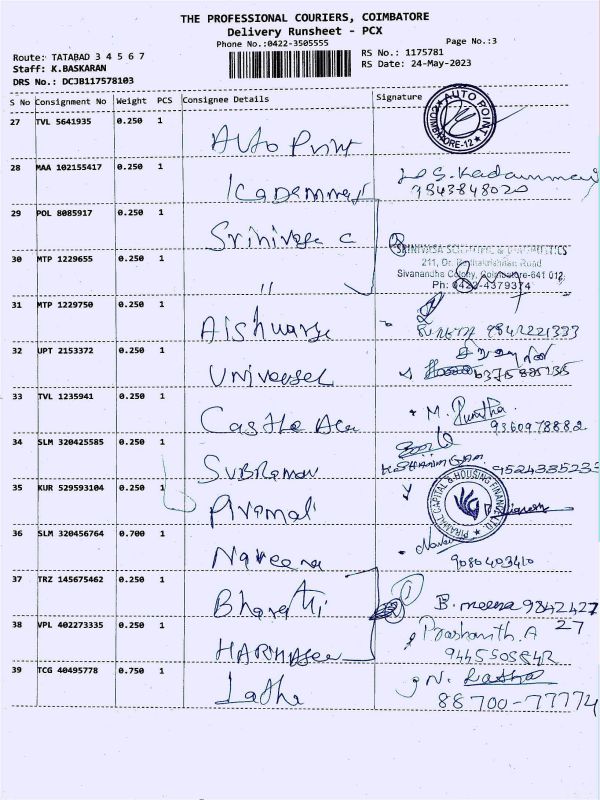 THE PROFESSIONAL COURIERS, COIMBATORE
Delivery Runsheet - PCX
Phone No.:0422-3505555
Page No.:3
Route: TATABAD 3 4 5 6 7
RS No.: 1175781
Staff: K.BASKARAN
RS Date: 24-May-2023
DRS No.: DCJB117578103
S No Consignment No Weight PCS Consignee Details Signature
27 TVL 5641935 0.250 1 Auto Print
AUTO POINT COIMBATORE-12
28 MAA 102155417 0.250 1
9843848020
29 POL 8085917 0.250 1 Srinivasa C
30 MTP 1229655 0.250 1 "
211, Dr. Road
Sivanandha Colony, Coimbatore-641 012.
Ph: 0422-4379374
31 MTP 1229750 0.250 1 Aishwarya
9842221333
32 UPT 2153372 0.250 1 Universel
33 TVL 1235941 0.250 1 Castle
M.
9360978882
34 SLM 320425585 0.250 1 Subraman
9524335233
35 KUR 529593104 0.250 1 Piramal
PIRAMAL CAPITAL & HOUSING FINANCE LTD.
36 SLM 320456764 0.700 1 Naveena
9080403410
37 TRZ 145675462 0.250 1 Bharathi
B. meena 9842427
27
38 VPL 402273335 0.250 1
Prashanth. A
39 TCG 40495778 0.750 1 Latha
N. Latha
88700-77774